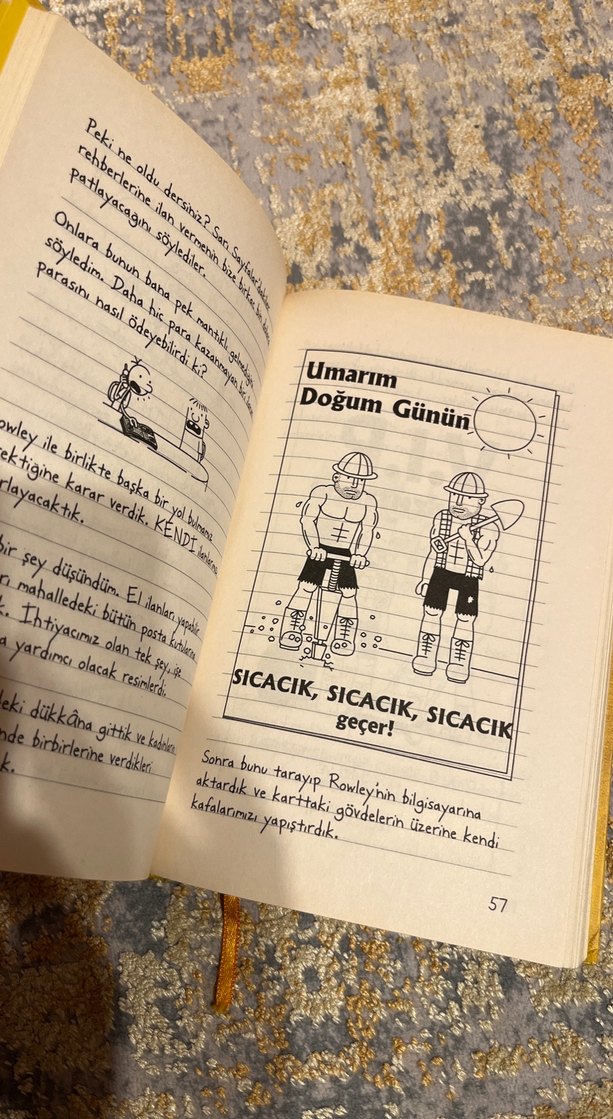 Peki ne oldu dersiniz? Sarı Sayfalar'dakiler
rehberlerine ilan vermenin bize birkaç bin dolara
patlayacağını söylediler.
Onlara bunun bana pek mantıklı gelmediğini
söyledim. Daha hiç para kazanmayan biri
parasını nasıl ödeyebilirdi ki?
owley ile birlikte başka bir yol bulmamız
ektiğine karar verdik. KENDİ ilanlarımızı
rlayacaktık.
bir şey düşündüm. El ilanları yapabilir
rı mahalledeki bütün posta kutularına
k. İhtiyacımız olan tek şey, işe
a yardımcı olacak resimlerdi.
eki dükkâna gittik ve kadınların
nde birbirlerine verdikleri
k.
Umarım
Doğum Günün
SICACIK, SICACIK, SICACIK
geçer!
Sonra bunu tarayıp Rowley'nin bilgisayarına
aktardık ve karttaki gövdelerin üzerine kendi
kafalarımızı yapıştırdık.
57